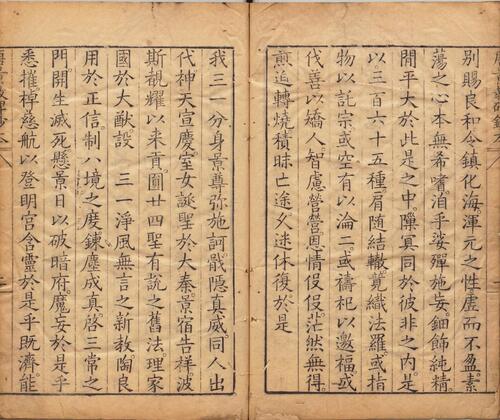 別賜良和令鎮化海渾元之性虛而不盈素
蕩之心本無希嗜洎乎娑殫施妄鈿飾純精
閒平大於此是之中隟冥同於彼非之内是
以三百六十五種肩隨結轍竟織法羅或指
物以託宗或空有以淪二或禱祀以邀福或
伐善以嬌人智慮營營恩情伇伇茫然無得
煎迫轉燒積昧亡途久迷休復於是
我三一分身景尊弥施訶戢隱真威同人出
代神天宣慶室女誕聖於大秦景宿告祥波
斯覩耀以来貢圓廿四聖有説之舊法理家
國於大猷設　三一淨風無言之新教陶良
用於正信制八境之度鍊塵成真啓三常之
門開生滅死懸景日以破暗府魔妄於是乎
悉摧棹慈航以登明宮含靈於是乎既濟能